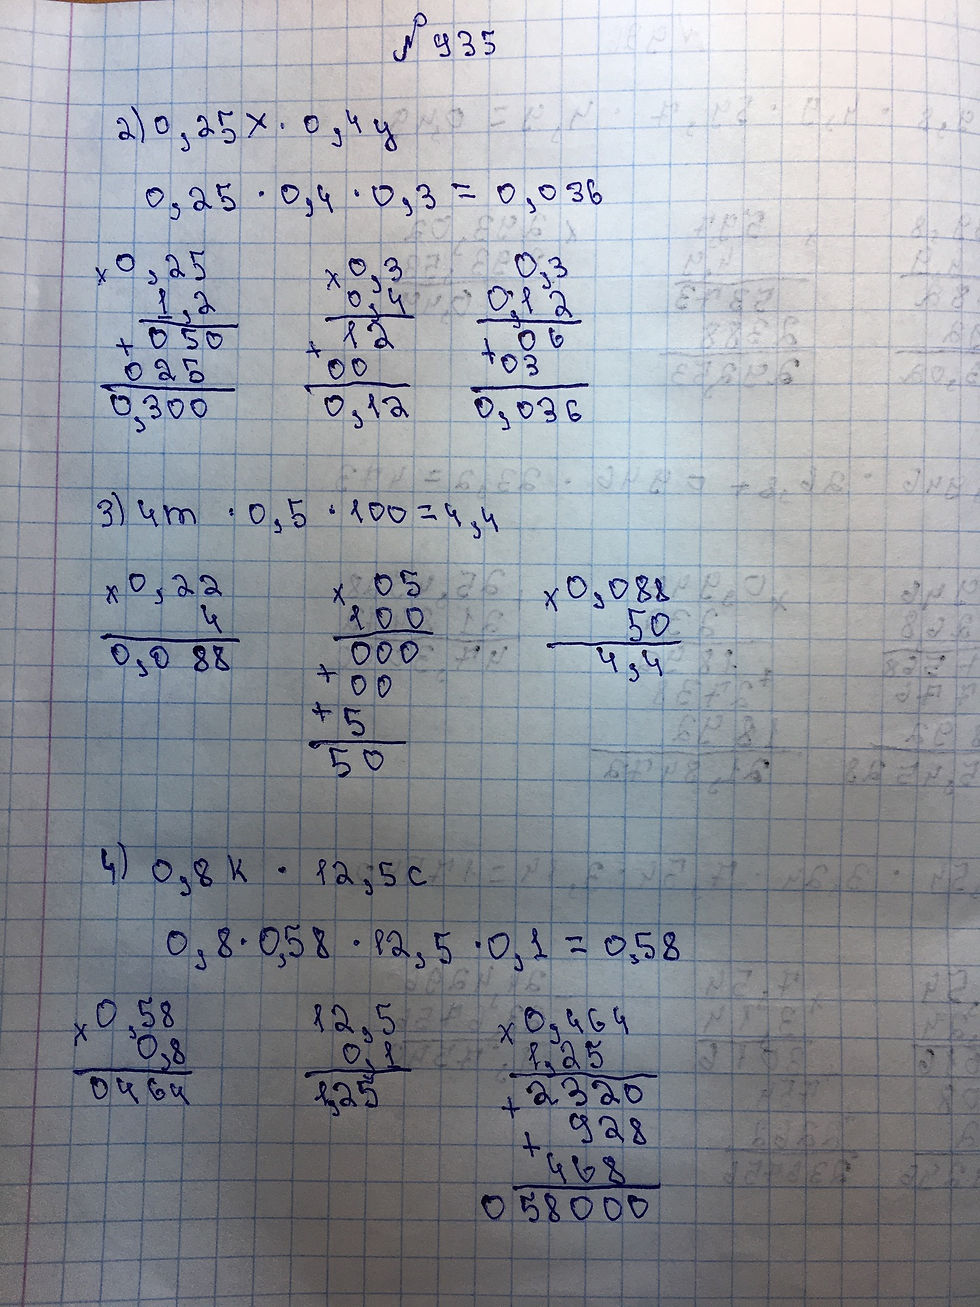 № 935
2) 0,25x · 0,4y
0,25 · 0,4 · 0,3 = 0,036
× 0,25
1,2
+ 050
025
0,300
× 0,3
0,4
+ 12
00
0,12
0,3
0,12
+ 06
03
0,036
3) 4m · 0,5 · 100 = 4,4
× 0,22
4
0,088
× 05
100
000
+ 00
+ 5
50
× 0,088
50
4,4
4) 0,8k · 12,5c
0,8 · 0,58 · 12,5 · 0,1 = 0,58
× 0,58
0,8
0464
12,5
0,1
1,25
× 0,464
1,25
+ 2320
+ 928
468
058000